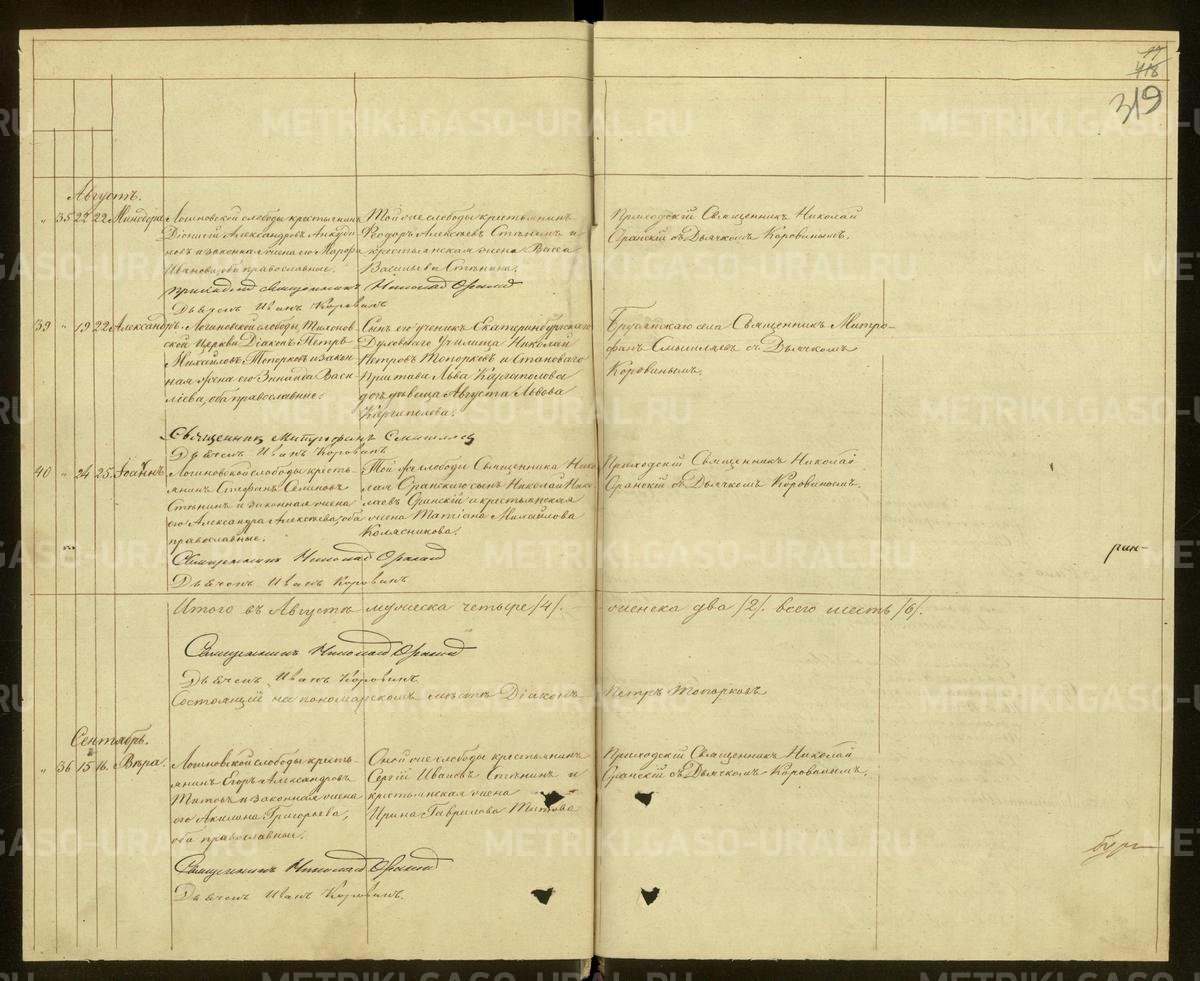 17
418
319
Августъ.
" 35 22 22 Минодора Логиновской слободы крестьянинъ
Діонисій Александровъ Анкуди-
новъ и законная жена его Марфа
Иванова, оба православные.
Той же слободы крестьянинъ
Ѳеодоръ Алексѣевъ Стѣнинъ и
крестьянская жена Васса
Васильева Стѣнина.
Приходскій Священникъ Николай
Оранскій съ Дьячкомъ Коровинымъ.
Приходской священникъ Николай Оранскій
Дьячекъ Иванъ Коровинъ
39 " 19 22 Александръ. Логиновской слободы Тихонов-
ской Церкви Діаконъ Петръ
Михайловъ Топорковъ и закон-
ная жена его Зинаида Васи-
ліева, оба православные.
Сынъ его ученикъ Екатеринбургскаго
Духовнаго Училища Николай
Петровъ Топорковъ и Становаго
Пристава Льва Каргаполова
дочь дѣвица Августа Львова
Каргаполова.
Брусянскаго села Священникъ Митро-
фанъ Смышляевъ съ Дьячкомъ
Коровинымъ.
Священникъ Митрофанъ Смышляевъ
Дьячекъ Иванъ Коровинъ
40 " 24 25 Іоаннъ Логиновской слободы кресть-
янинъ Стефанъ Семеновъ
Стѣнинъ и законная жена
его Александра Алексѣева, оба
православные.
Той же слободы Священника Нико-
лая Оранскаго сынъ Николай Нико-
лаевъ Оранскій и крестьянская
жена Татіана Михайлова
Колясникова.
Приходскій Священникъ Николай
Оранскій съ Дьячкомъ Коровинымъ.
Священникъ Николай Оранскій
Дьячекъ Иванъ Коровинъ
Итого въ Августѣ мужеска четыре /4/. женска два /2/. всего шесть /6/.
Священникъ Николай Оранскій
Дьячекъ Иванъ Коровинъ
Состоящій на пономарскомъ мѣстѣ Діаконъ Петръ Топорковъ
Сентябрь.
" 36 15 16. Вѣра. Логиновской слободы кресть-
янинъ Егоръ Александровъ
Титовъ и законная жена
его Акилина Григорьева,
оба православные.
Оной же слободы крестьянинъ
Сергій Ивановъ Стѣнинъ и
крестьянская жена
Ирина Гаврилова Титова
Приходскій Священникъ Николай
Оранскій съ Дьячкомъ Коровинымъ.
Священникъ Николай Оранскій
Дьячекъ Иванъ Коровинъ.
METRIKI.GASO-URAL.RU